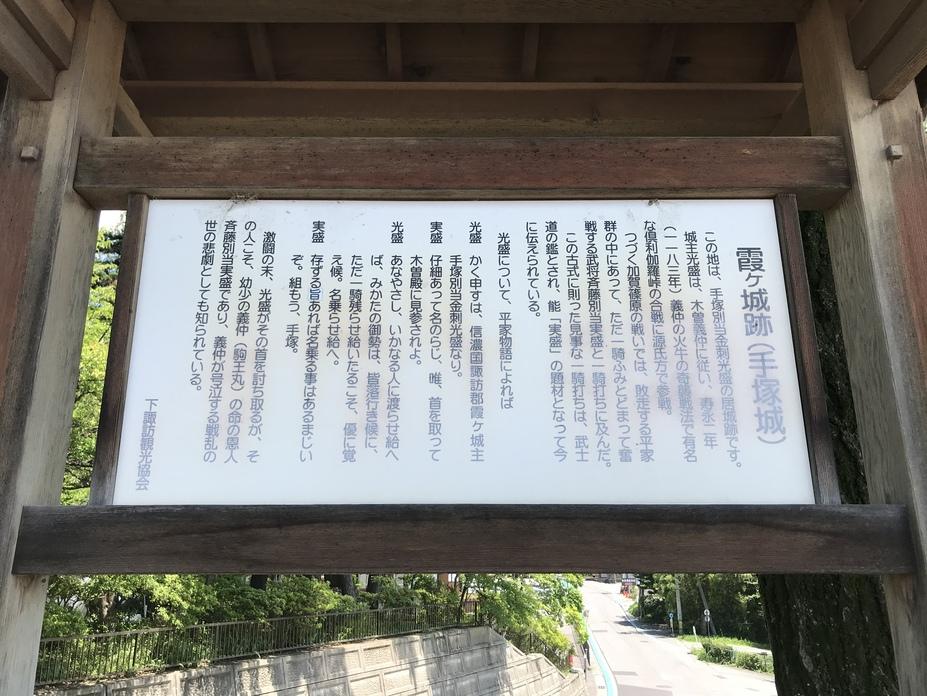 霞ヶ城跡（手塚城）
この地は、手塚別当金刺光盛の居城跡です。
城主光盛は、木曽義仲に従い、寿永二年
（一一八三年）義仲の火牛の奇襲戦法で有名
な倶利伽羅峠の合戦に源氏方で参戦。
つづく加賀篠原の戦いでは、敗走する平家
群の中にあって、ただ一騎ふみとどまって奮
戦する武将斉藤別当実盛と一騎打ちに及んだ。
この古式に則った見事な一騎打ちは、武士
道の鑑とされ、能「実盛」の題材となって今
に伝えられている。
光盛について、平家物語によれば
光盛　かく申すは、信濃国諏訪郡霞ヶ城主
手塚別当金刺光盛なり。
実盛　仔細あって名のらじ、唯、首を取って
木曽殿に見参されよ。
光盛　あなやさし、いかなる人に渡らせ給へ
ば、みかたの御勢は、皆落行き候に、
ただ一騎残らせ給いたるこそ、優に覚
え候。名乗らせ給へ。
実盛　存ずる旨あれば名乗る事はあるまじい
ぞ。組もう、手塚。
激闘の末、光盛がその首を討ち取るが、そ
の人こそ、幼少の義仲（駒王丸）の命の恩人
斉藤別当実盛であり、義仲が号泣する戦乱の
世の悲劇としても知られている。
下諏訪観光協会